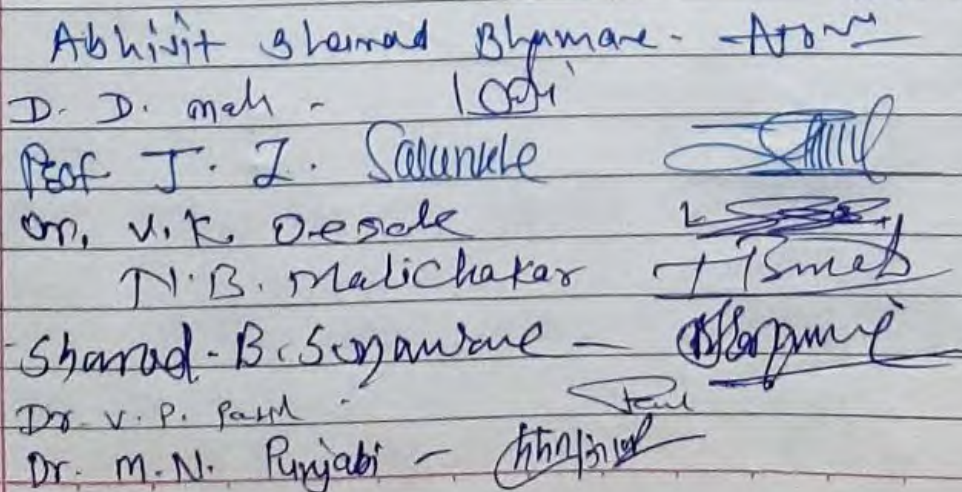 Abhijit Sharad Bhamare -
D. D. mali -
Prof J. Z. Salunkhe
Dr, V. K. Desale
N. B. Malichakar
Sharad - B. Sonawane -
Dr. V. P. Patil -
Dr. M. N. Punjabi -